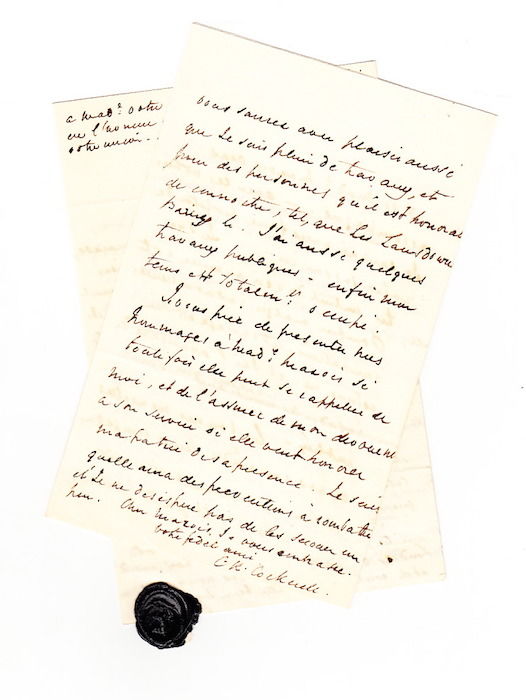 a mad.e votre
eu l'honneur
votre union..
vous saurez avec plaisir aussi
que Je suis plein de travaux, et
pour des personnes qu'il est honorab
de connoitre, tel, que les Lansdowne
Barings &. J'ai aussi quelques
travaux publiques - enfin mon
tems est totalemt. occupé.
Je vous prie de presenter mes
hommages à mad.e Mazois si
toute fois elle peut se rappeler de
moi, et de l'assurer de mon devouement
a son service si elle veut honorer
ma patrie de sa presence. Je sais
quelle aura des preventions à combattre
et Je ne desespere pas de les secouer un
peu. Cher Mazois, Je vous embrasse.
votre fidel ami.
C. R. Cockerell.